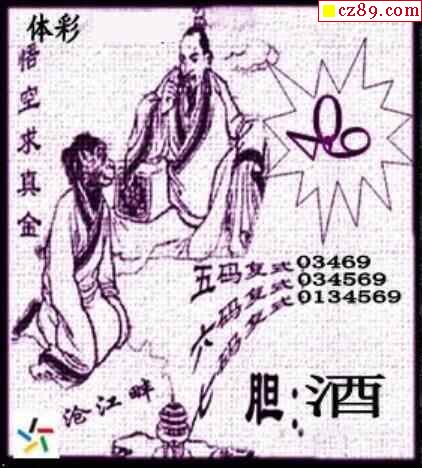 cz89.com
体彩
悟空求真金
五码复式03469
六码复式034569
七码复式0134569
沧江畔
胆:酒